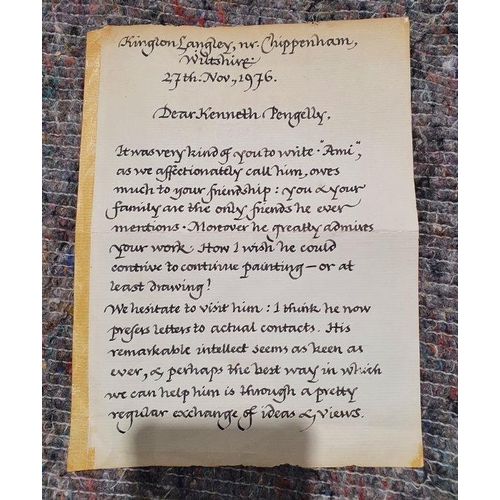 Kington Langley, nr. Chippenham,
Wiltshire
27th. Nov., 1976.
Dear Kenneth Pengelly,
It was very kind of you to write. "Ami",
as we affectionately call him, owes
much to your friendship: you & your
family are the only friends he ever
mentions. Moreover he greatly admires
your work. How I wish he could
contrive to continue painting — or at
least drawing!
We hesitate to visit him: I think he now
prefers letters to actual contacts. His
remarkable intellect seems as keen as
ever, & perhaps the best way in which
we can help him is through a pretty
regular exchange of ideas & views.